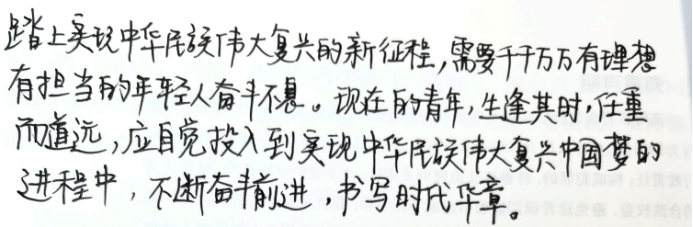 踏上实现中华民族伟大复兴的新征程,需要千千万万有理想
有担当的年轻人奋斗不息。现在的青年,生逢其时,任重
而道远,应自觉投入到实现中华民族伟大复兴中国梦的
进程中,不断奋斗前进,书写时代华章。